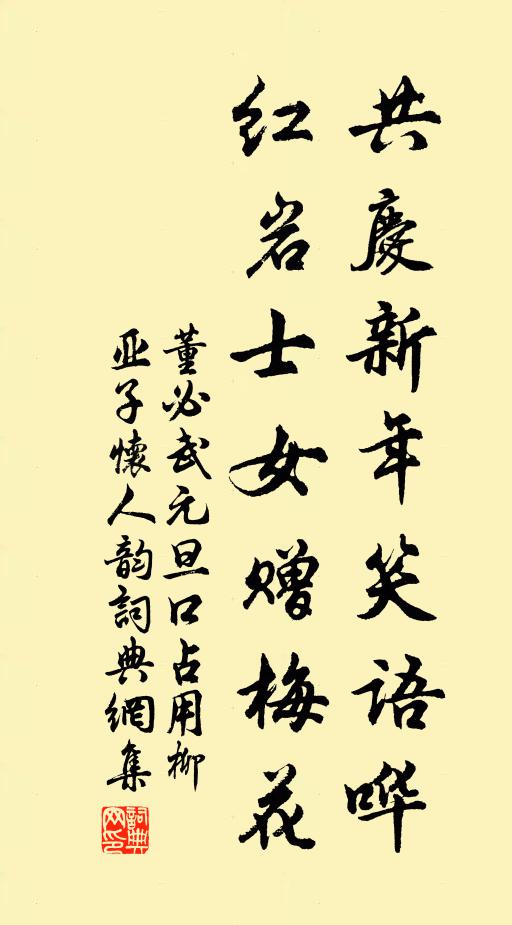 共慶新年笑语哗
红岩士女赠梅花
董必武元旦口占用柳
亚子懷人韵詞典網集
詞典網印